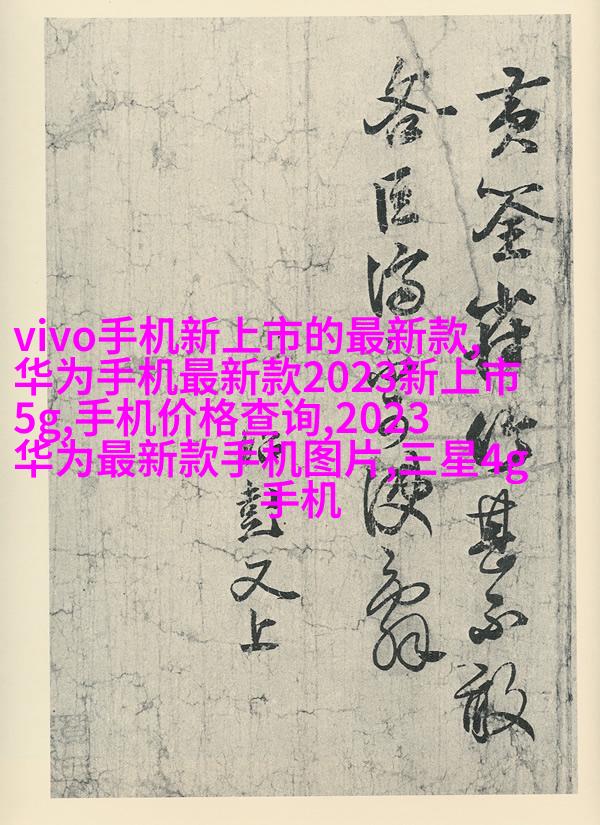 vivo手机新上市的最新款,
华为手机最新款2023新上市
5g,手机价格查询,2023
华为最新款手机图片,三星4g
手机
黄筌雀竹甚不敢
又上